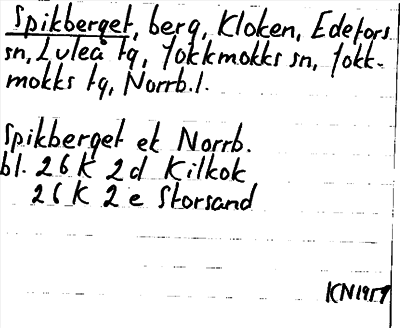 Spikberget, berg, Kloken, Edefors
sn, Luleå tg, Jokkmokks sn, Jokk-
mokks tg, Norrb.l.
Spikberget ek Norrb.
bl. 26 K 2d Kilkok
26 K 2e Storsand
KN1959